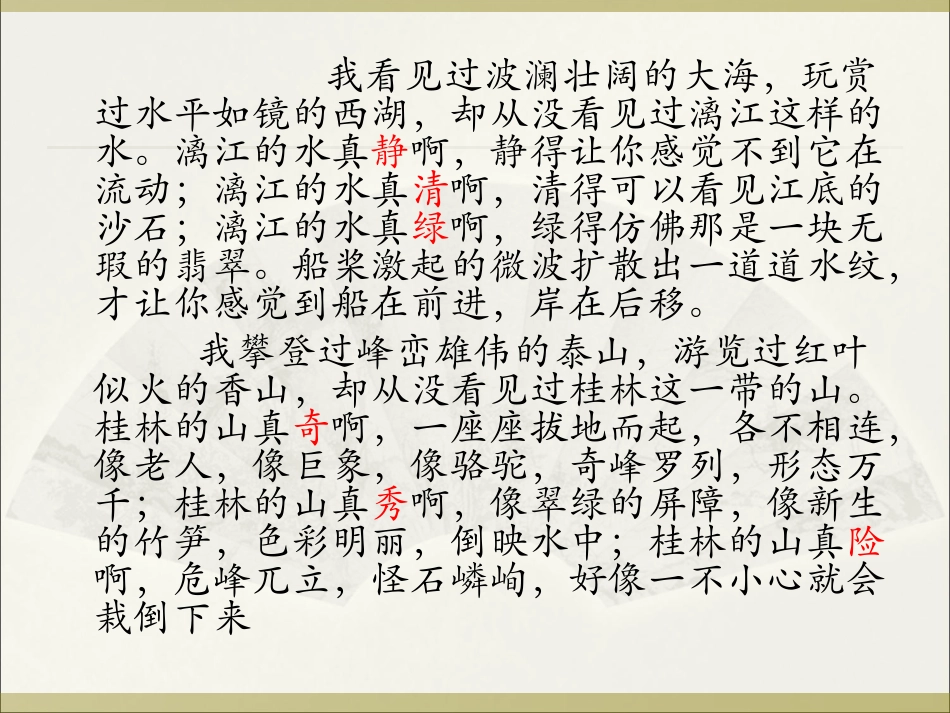 我看见过波澜壮阔的大海，玩赏
过水平如镜的西湖，却从没看见过漓江这样的
水。漓江的水真静啊，静得让你感觉不到它在
流动；漓江的水真清啊，清得可以看见江底的
沙石；漓江的水真绿啊，绿得仿佛那是一块无
瑕的翡翠。船桨激起的微波扩散出一道道水纹，
才让你感觉到船在前进，岸在后移。
我攀登过峰峦雄伟的泰山，游览过红叶
似火的香山，却从没看见过桂林这一带的山。
桂林的山真奇啊，一座座拔地而起，各不相连，
像老人，像巨象，像骆驼，奇峰罗列，形态万
千；桂林的山真秀啊，像翠绿的屏障，像新生
的竹笋，色彩明丽，倒映水中；桂林的山真险
啊，危峰兀立，怪石嶙峋，好像一不小心就会
栽倒下来